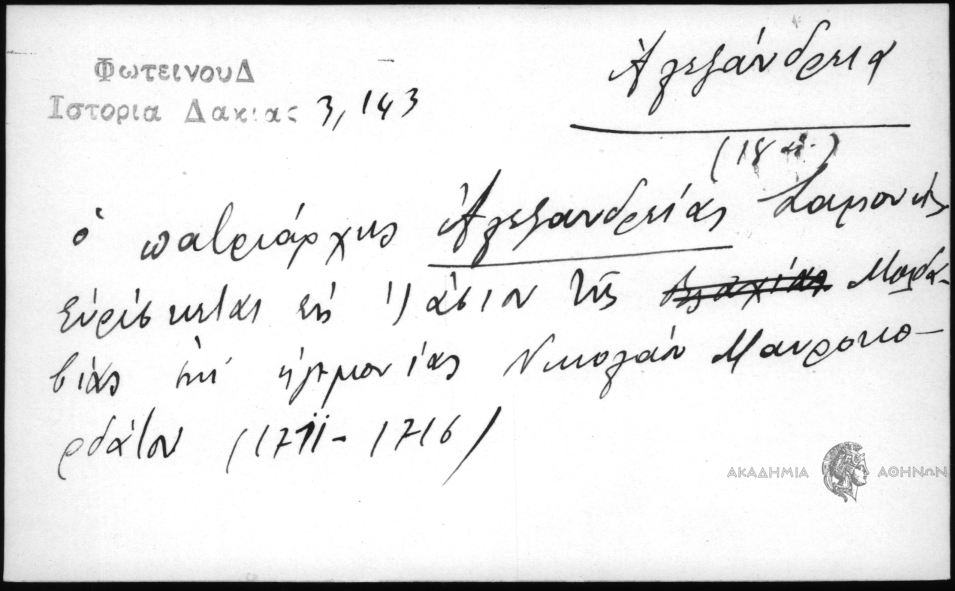 Φωτεινου Δ
Ιστορια Δακιας 3,143
Ἀλεξάνδρεια
(18 αἰ.)
ὁ πατριάρχης Ἀλεξανδρείας Σαμουήλ
εὑρίσκεται εἰς Ἰάσιον τῆς Βλαχίας Μολδα-
βίας ἐπὶ ἡγεμονίας Νικολάου Μαυροκο-
ρδάτου (1711-1716)
ΑΚΑΔΗΜΙΑ ΑΘΗΝΩΝ